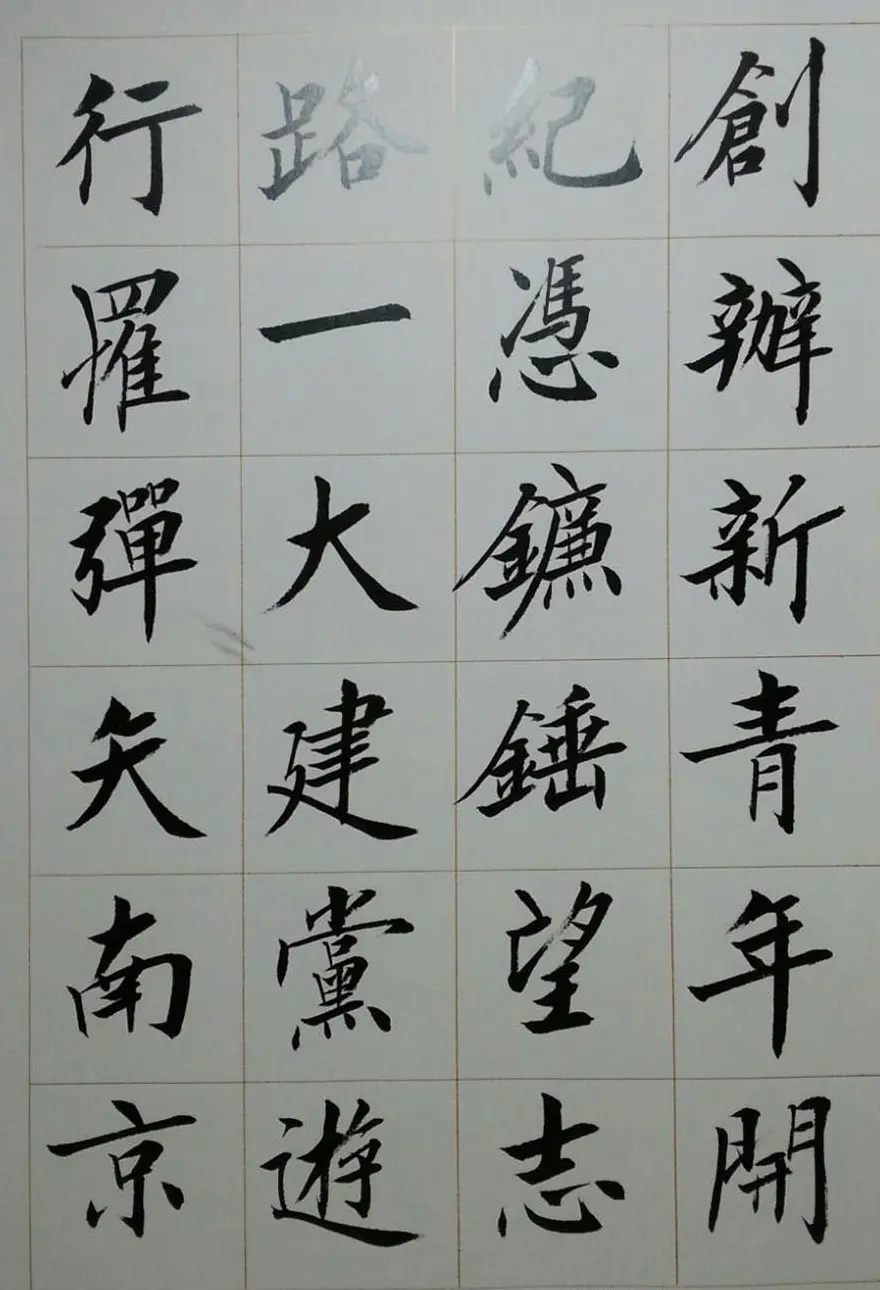 創辦新青年開
紀憑鐮錘望志
路一大建黨遊
行罹彈矢南京